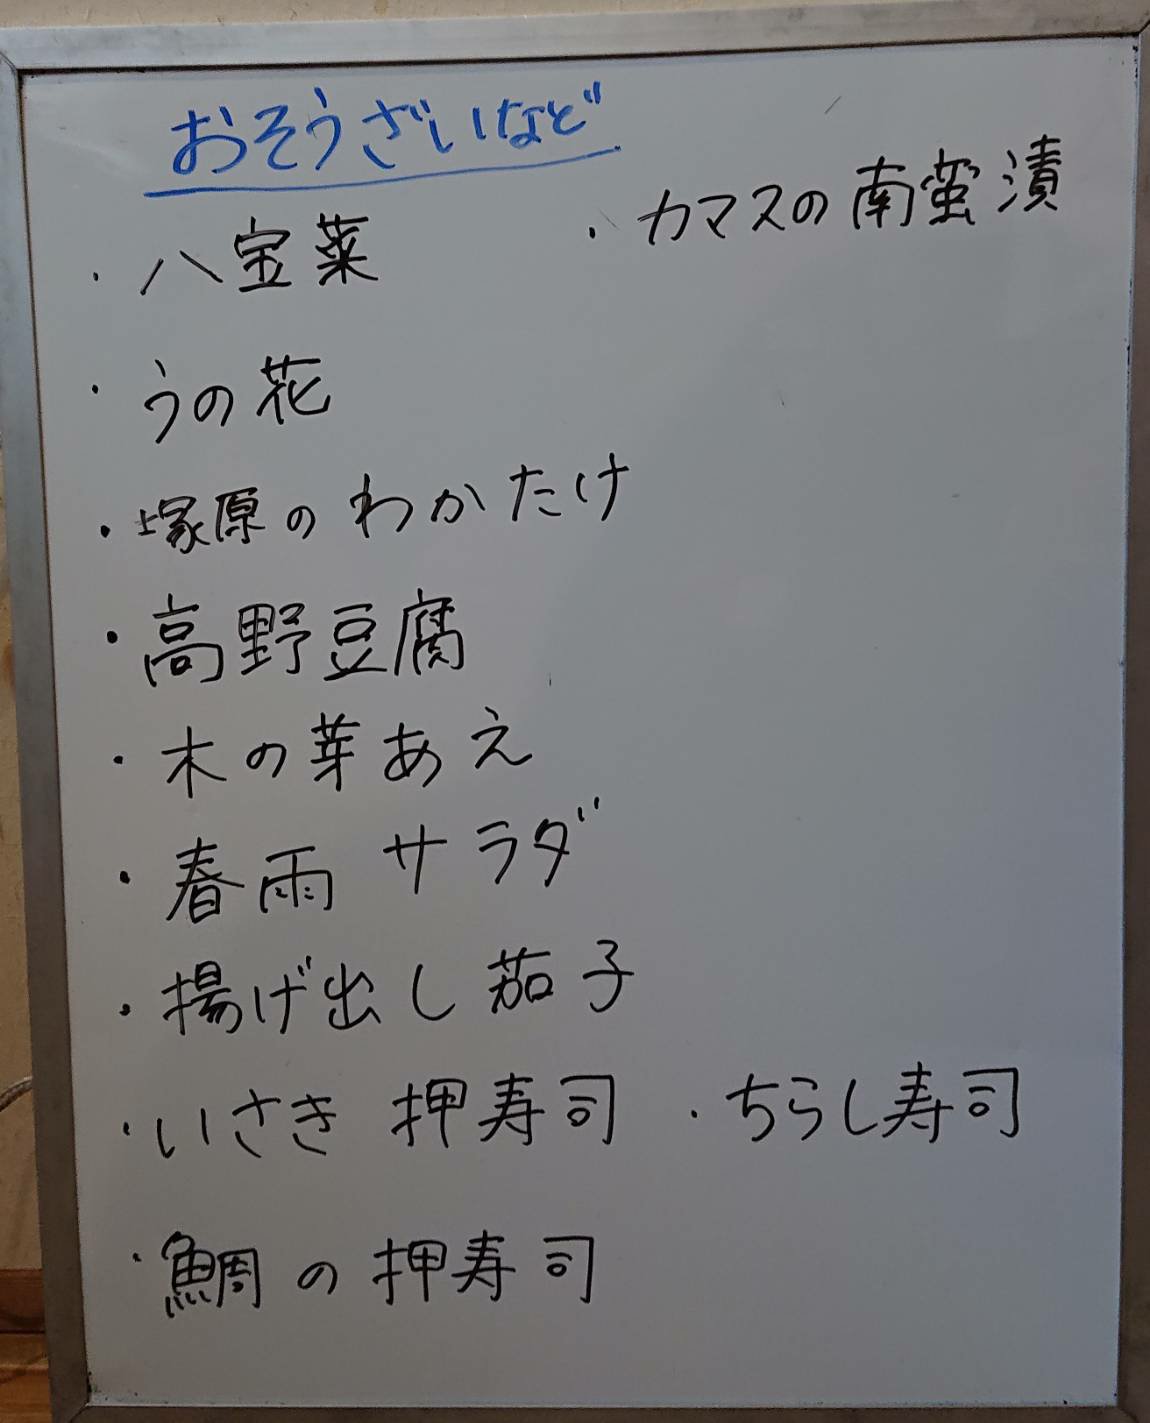 おそうざいなど
・八宝菜
・カマスの南蛮漬
・うの花
・塚原のわかたけ
・高野豆腐
・木の芽あえ
・春雨サラダ
・揚げ出し茄子
・いさき押寿司 ・ちらし寿司
・鯛の押寿司